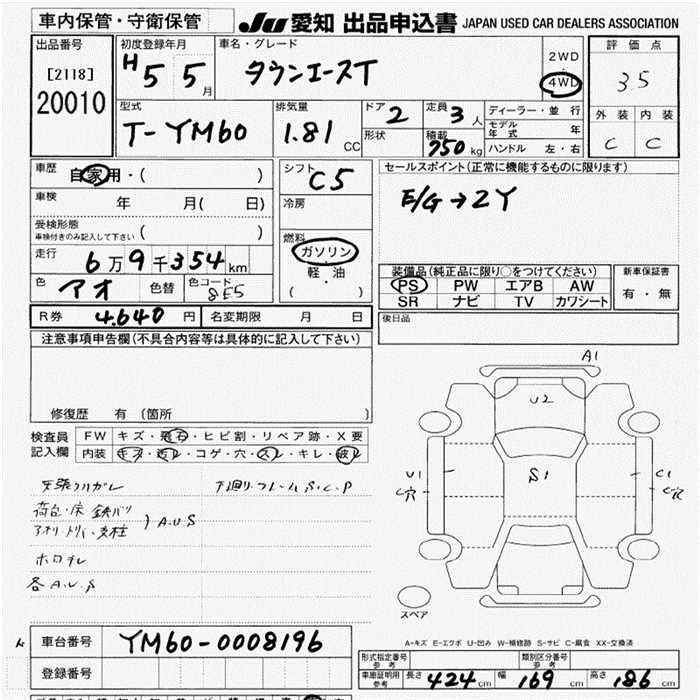 車内保管・守衛保管
JU 愛知 出品申込書 JAPAN USED CAR DEALERS ASSOCIATION
出品番号
[2118]
20010
初度登録年月
H5 5月
車名・グレード
タウンエースT
2WD
・
4WD
評価点
3.5
外装 内装
C C
型式
T-YM60
排気量
1.81 CC
ドア
2
形状
定員
3人
積載
750kg
ディーラー・並行
モデル年式 年
ハンドル 左・右
車歴
自家用・( )
車検
年 月( 日)
受検形態
車検付きのみ記入して下さい ( )
走行
6万9千354km
色
アオ
色替
色コード
8E5
シフト
C5
冷房
燃料
ガソリン
軽・油
( )
セールスポイント(正常に機能するものに限ります)
E/G→2Y
装備品(純正品に限り○をつけてください)
PS PW エアB AW
SR ナビ TV カワシート
新車保証書
有・無
R券 4.640円
名変期限 月 日
後日品
注意事項申告欄(不具合内容等は具体的に記入して下さい)
修復歴 有(箇所 )
検査員
記入欄
FW キズ・飛石・ヒビ割・リペア跡・X要
内装 キズ・汚レ・コゲ・穴・スレ・キレ・破レ
天張りハガレ
下廻リ・フレームS・C・P
荷台・床 鉄バリ
アオリ トリイ・支柱
)A.U.S
ホロナレ
各A.U.S
A1
U2
S1
U1
C穴
C1
C穴
スペア
A-キズ E-エクボ U-凹み W-補修跡 S-サビ C-腐食 XX-交換済
車台番号 YM60-0008196
登録番号
形式指定番号
参考
類別区分番号
参考
車庫証明用
参考
長さ 424cm 幅 169cm 高さ 186cm